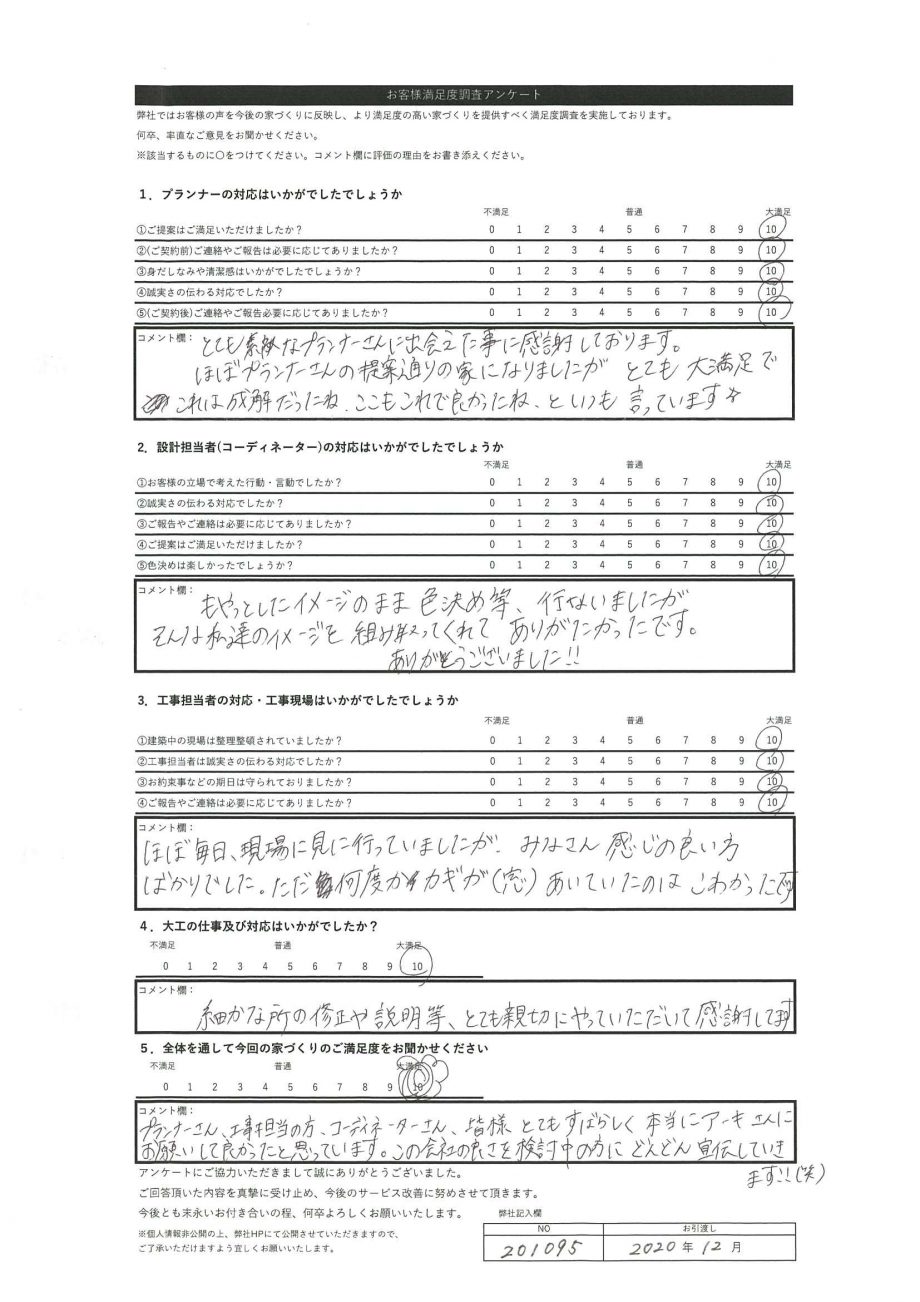 お客様満足度調査アンケート
弊社ではお客様の声を今後の家づくりに反映し、より満足度の高い家づくりを提供すべく満足度調査を実施しております。
何卒、率直なご意見をお聞かせください。
※該当するものに〇をつけてください。コメント欄に評価の理由をお書き添えください。
1．プランナーの対応はいかがでしたでしょうか
不満足 普通 大満足
①ご提案はご満足いただけましたか？ 0 1 2 3 4 5 6 7 8 9 10
②(ご契約前)ご連絡やご報告は必要に応じてありましたか？ 0 1 2 3 4 5 6 7 8 9 10
③身だしなみや清潔感はいかがでしたでしょうか？ 0 1 2 3 4 5 6 7 8 9 10
④誠実さの伝わる対応でしたか？ 0 1 2 3 4 5 6 7 8 9 10
⑤(ご契約後)ご連絡やご報告必要に応じてありましたか？ 0 1 2 3 4 5 6 7 8 9 10
コメント欄：
とても素敵なプランナーさんに出会えた事に感謝しております。
ほぼプランナーさんの提案通りの家になりましたが とても大満足で
これは成解だったね、ここもこれで良かったね、といつも言っています☆
2．設計担当者(コーディネーター)の対応はいかがでしたでしょうか
不満足 普通 大満足
①お客様の立場で考えた行動・言動でしたか？ 0 1 2 3 4 5 6 7 8 9 10
②誠実さの伝わる対応でしたか？ 0 1 2 3 4 5 6 7 8 9 10
③ご報告やご連絡は必要に応じてありましたか？ 0 1 2 3 4 5 6 7 8 9 10
④ご提案はご満足いただけましたか？ 0 1 2 3 4 5 6 7 8 9 10
⑤色決めは楽しかったでしょうか？ 0 1 2 3 4 5 6 7 8 9 10
コメント欄：
もやっとしたイメージのまま色決め等、行ないましたが
そんな私達のイメージを組み取ってくれて ありがたかったです。
ありがとうございました!!
3．工事担当者の対応・工事現場はいかがでしたでしょうか
不満足 普通 大満足
①建築中の現場は整理整頓されていましたか？ 0 1 2 3 4 5 6 7 8 9 10
②工事担当者は誠実さの伝わる対応でしたか？ 0 1 2 3 4 5 6 7 8 9 10
③お約束事などの期日は守られておりましたか？ 0 1 2 3 4 5 6 7 8 9 10
④ご報告やご連絡は必要に応じてありましたか？ 0 1 2 3 4 5 6 7 8 9 10
コメント欄：
ほぼ毎日、現場に見に行っていましたが、みなさん感じの良い方
ばかりでした。ただ何度かカギが(窓)あいていたのはこわかったです
4．大工の仕事及び対応はいかがでしたか？
不満足 普通 大満足
0 1 2 3 4 5 6 7 8 9 10
コメント欄：
細かな所の修正や説明等、とても親切にやっていただいて感謝してます
5．全体を通して今回の家づくりのご満足度をお聞かせください
不満足 普通 大満足
0 1 2 3 4 5 6 7 8 9 10
コメント欄：
プランナーさん、工事担当の方、コーディネーターさん、皆様とてもすばらしく本当にアーキさんに
お願いして良かったと思っています。この会社の良さを検討中の方にどんどん宣伝していき
ます!!(笑)
アンケートにご協力いただきまして誠にありがとうございました。
ご回答頂いた内容を真摯に受け止め、今後のサービス改善に努めさせて頂きます。
今後とも末永いお付き合いの程、何卒よろしくお願いいたします。
弊社記入欄
※個人情報非公開の上、弊社HPにて公開させていただきますので、
ご了承いただけますよう宜しくお願いいたします。
NO お引渡し
201095 2020年12月